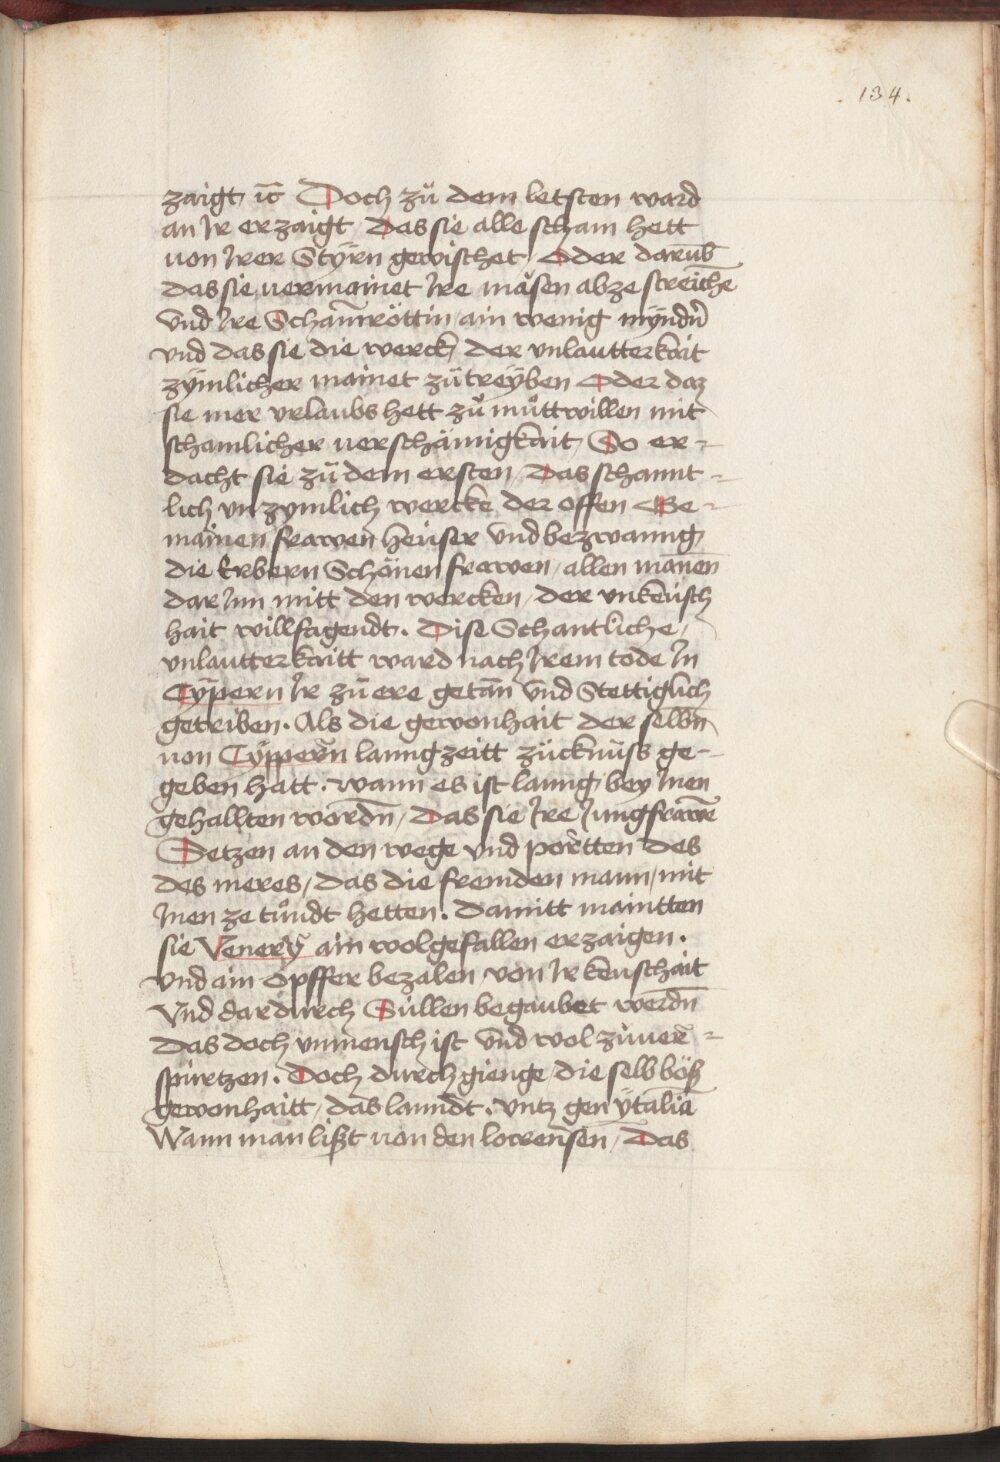 134.
zaigt ic̄ Doch zů dem letsten ward
an Ir erzaigt / Das sie alle scham hett
von Irer Stÿrn gewischet / Oder darūb
das sie vermainet Ire måsen abze streiche
vnd Ire Scham̄röttin ain wenig mÿndn̄
vnd das sie die werck der vnlautterkait
zÿmlicher mainet zůtreÿben Oder daz
sie mer vrlaubs hett zů můttwillen mit
schamlicher verschämigkait / So er=
dacht sie zů dem ersten / Das schannt=
lich vnzymlich wercke der offen Ge=
mainen frawen heüser vnd bezwanng
die Erbern Schönen frawen / allen manēn
dar Inn mitt den wercken / der vnkeüsch
hait willfagendt. Dise Schantliche /
vnlautterkaitt ward nach Irem tode In
Cÿpern Ir zů ere getan̄ vnd Stettiglich
getriben. Als die gewonhait der selbn̄
von Cÿppern̄ lanng zeitt zücknüss ge=
geben hatt. wann es ist lanng bey Inen
gehallten wordn̄ / Das sie Ire Jungfrawē
Setzen an den wege vnd portten des
des meres / das die fremden mann / mit
Inen ze tůndt hetten. Damitt maintten
sie Venerÿ ain wolgefallen erzaigen.
vnd ain opffer bezalen von Ir keuschait
Vnd dardurch Süllen begaubet werdn̄
Das doch vnmensch ist vnd wol zůuer=
spürtzen. Doch durch gienge die selb böß
gewonhaitt / das lanndt. vntz gen ÿtalia
Wann man lißt von den locrensen / Das